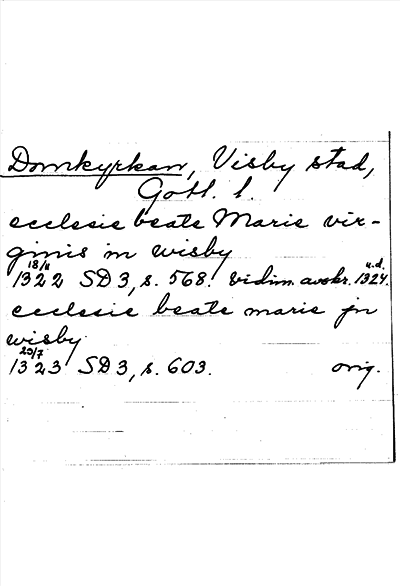 Domkyrkan, Visby stad,
Gotl. l.
ecclesie beate Marie vir-
ginis in wisby
18/11 u.d.
1322 SD 3, s. 568. vidim. avskr. 1324.
ecclesie beate marie jn
wisby
23/7
1323 SD 3, s. 603. orig.